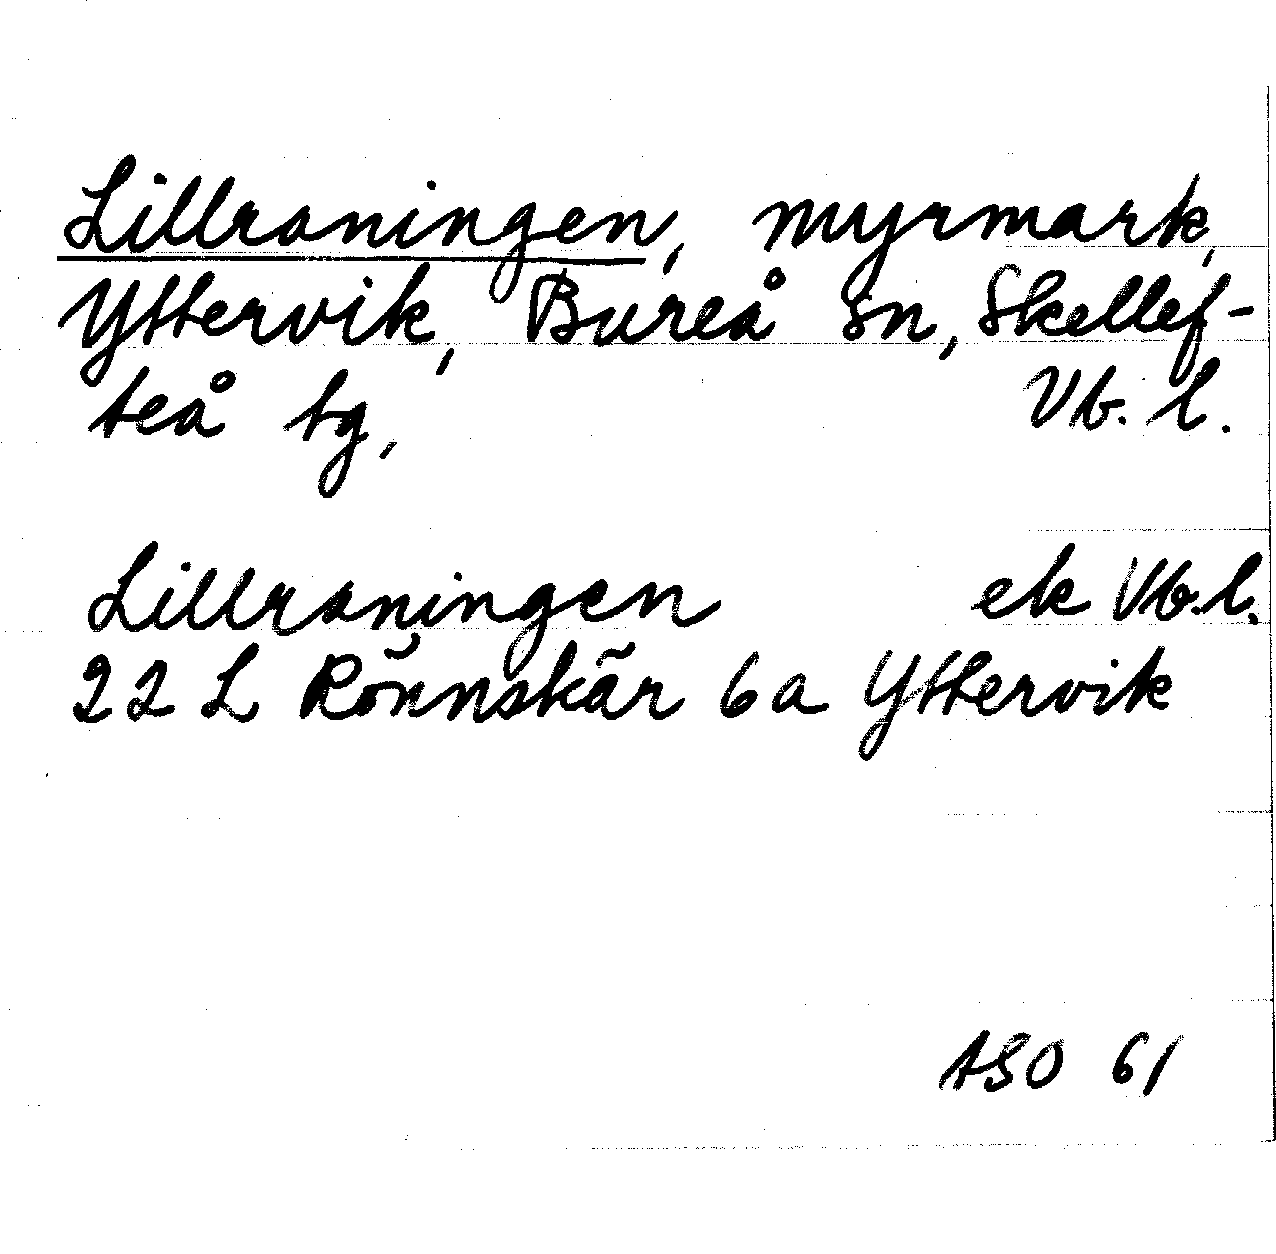 Lillraningen, myrmark,
Yttervik, Bureå sn, Skellef-
teå tg, Vb. l.
Lillraningen ek Vb.l.
22 L Rönnskär 6a Yttervik
ASO 61